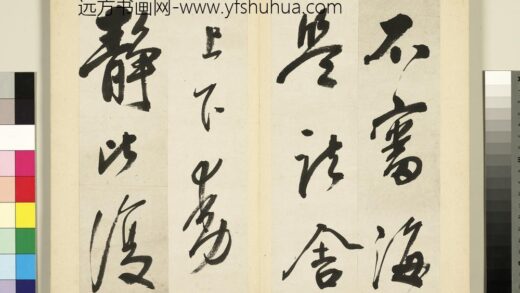 远方书画网-www.yfshuhua.com
不審海
諸舍
上下動
靜比復